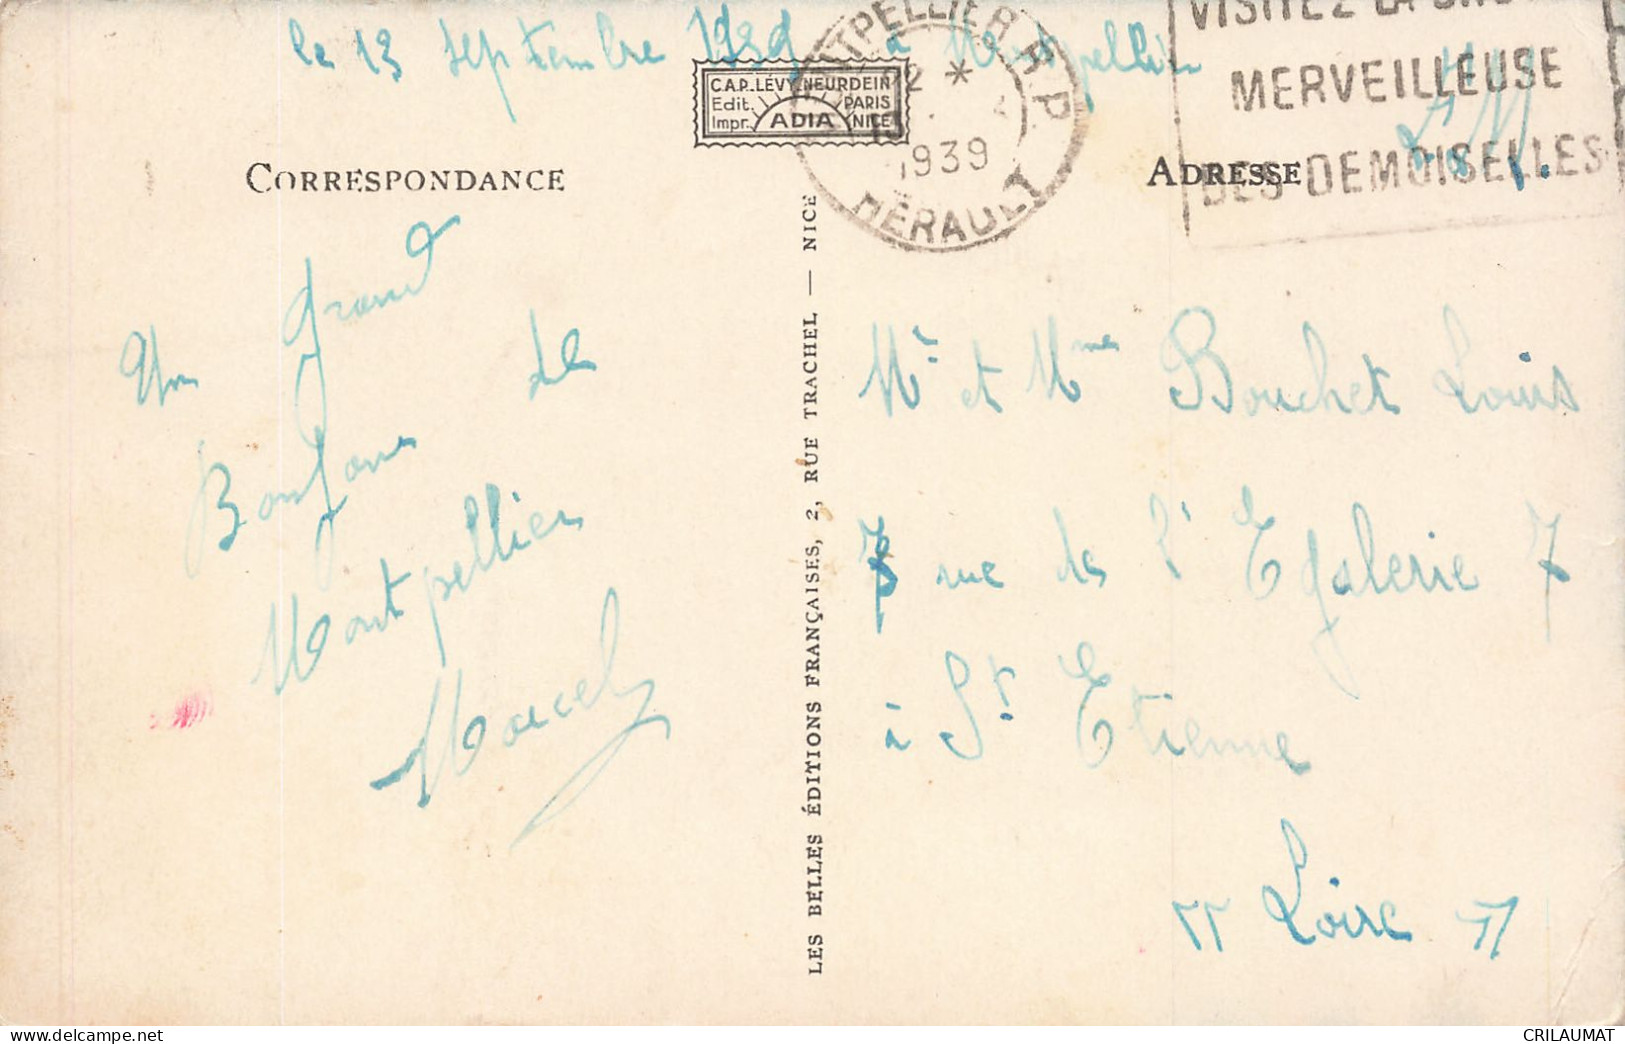 le 13 septembre 1939 à Montpellier
F.M.
C.A.P. LÉVY NEURDEIN
Edit. PARIS
Impr. ADIA NICE
MONTPELLIER R.P.
12 *
13
1939
HÉRAULT
VISITEZ LA
MERVEILLEUSE
DES DEMOISELLES
CORRESPONDANCE
ADRESSE
Un grand
Bonjour de
Montpellier
Marcel
LES BELLES ÉDITIONS FRANÇAISES, 2, RUE TRACHEL — NICE
Mr et Mme Bouchet Louis
7 rue de l'Egalerie 7
à St Etienne
" Loire "
delcampe.net
CRILAUMAT